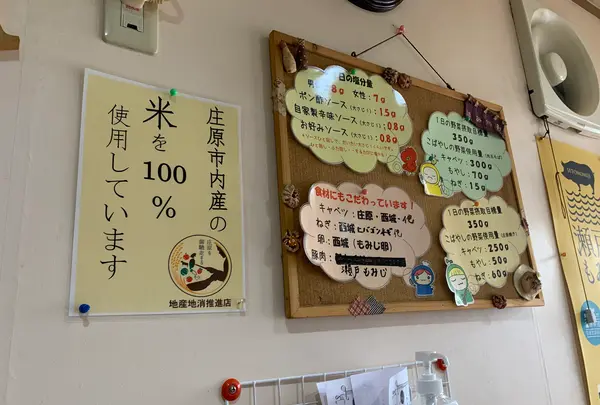 庄原市内産の
米を100%
使用しています
地産地消推進店
1日の塩分量
男性：8g 女性：7g
ポン酢ソース(大さじ1)：1.5g
自家製辛味ソース(大さじ1)：0.8g
お好みソース(大さじ1)：0.8g
食材にもこだわっています！
キャベツ：庄原・西城・
ねぎ：西城
卵：西城(もみじ卵)
豚肉：
瀬戸もみじ
1日の野菜摂取目標量
350g
こばやしの野菜使用量
キャベツ：300g
もやし：70g
ねぎ：15g
1日の野菜摂取目標量
350g
こばやしの野菜使用量
キャベツ：250g
もやし：50g
ねぎ：60g
瀬